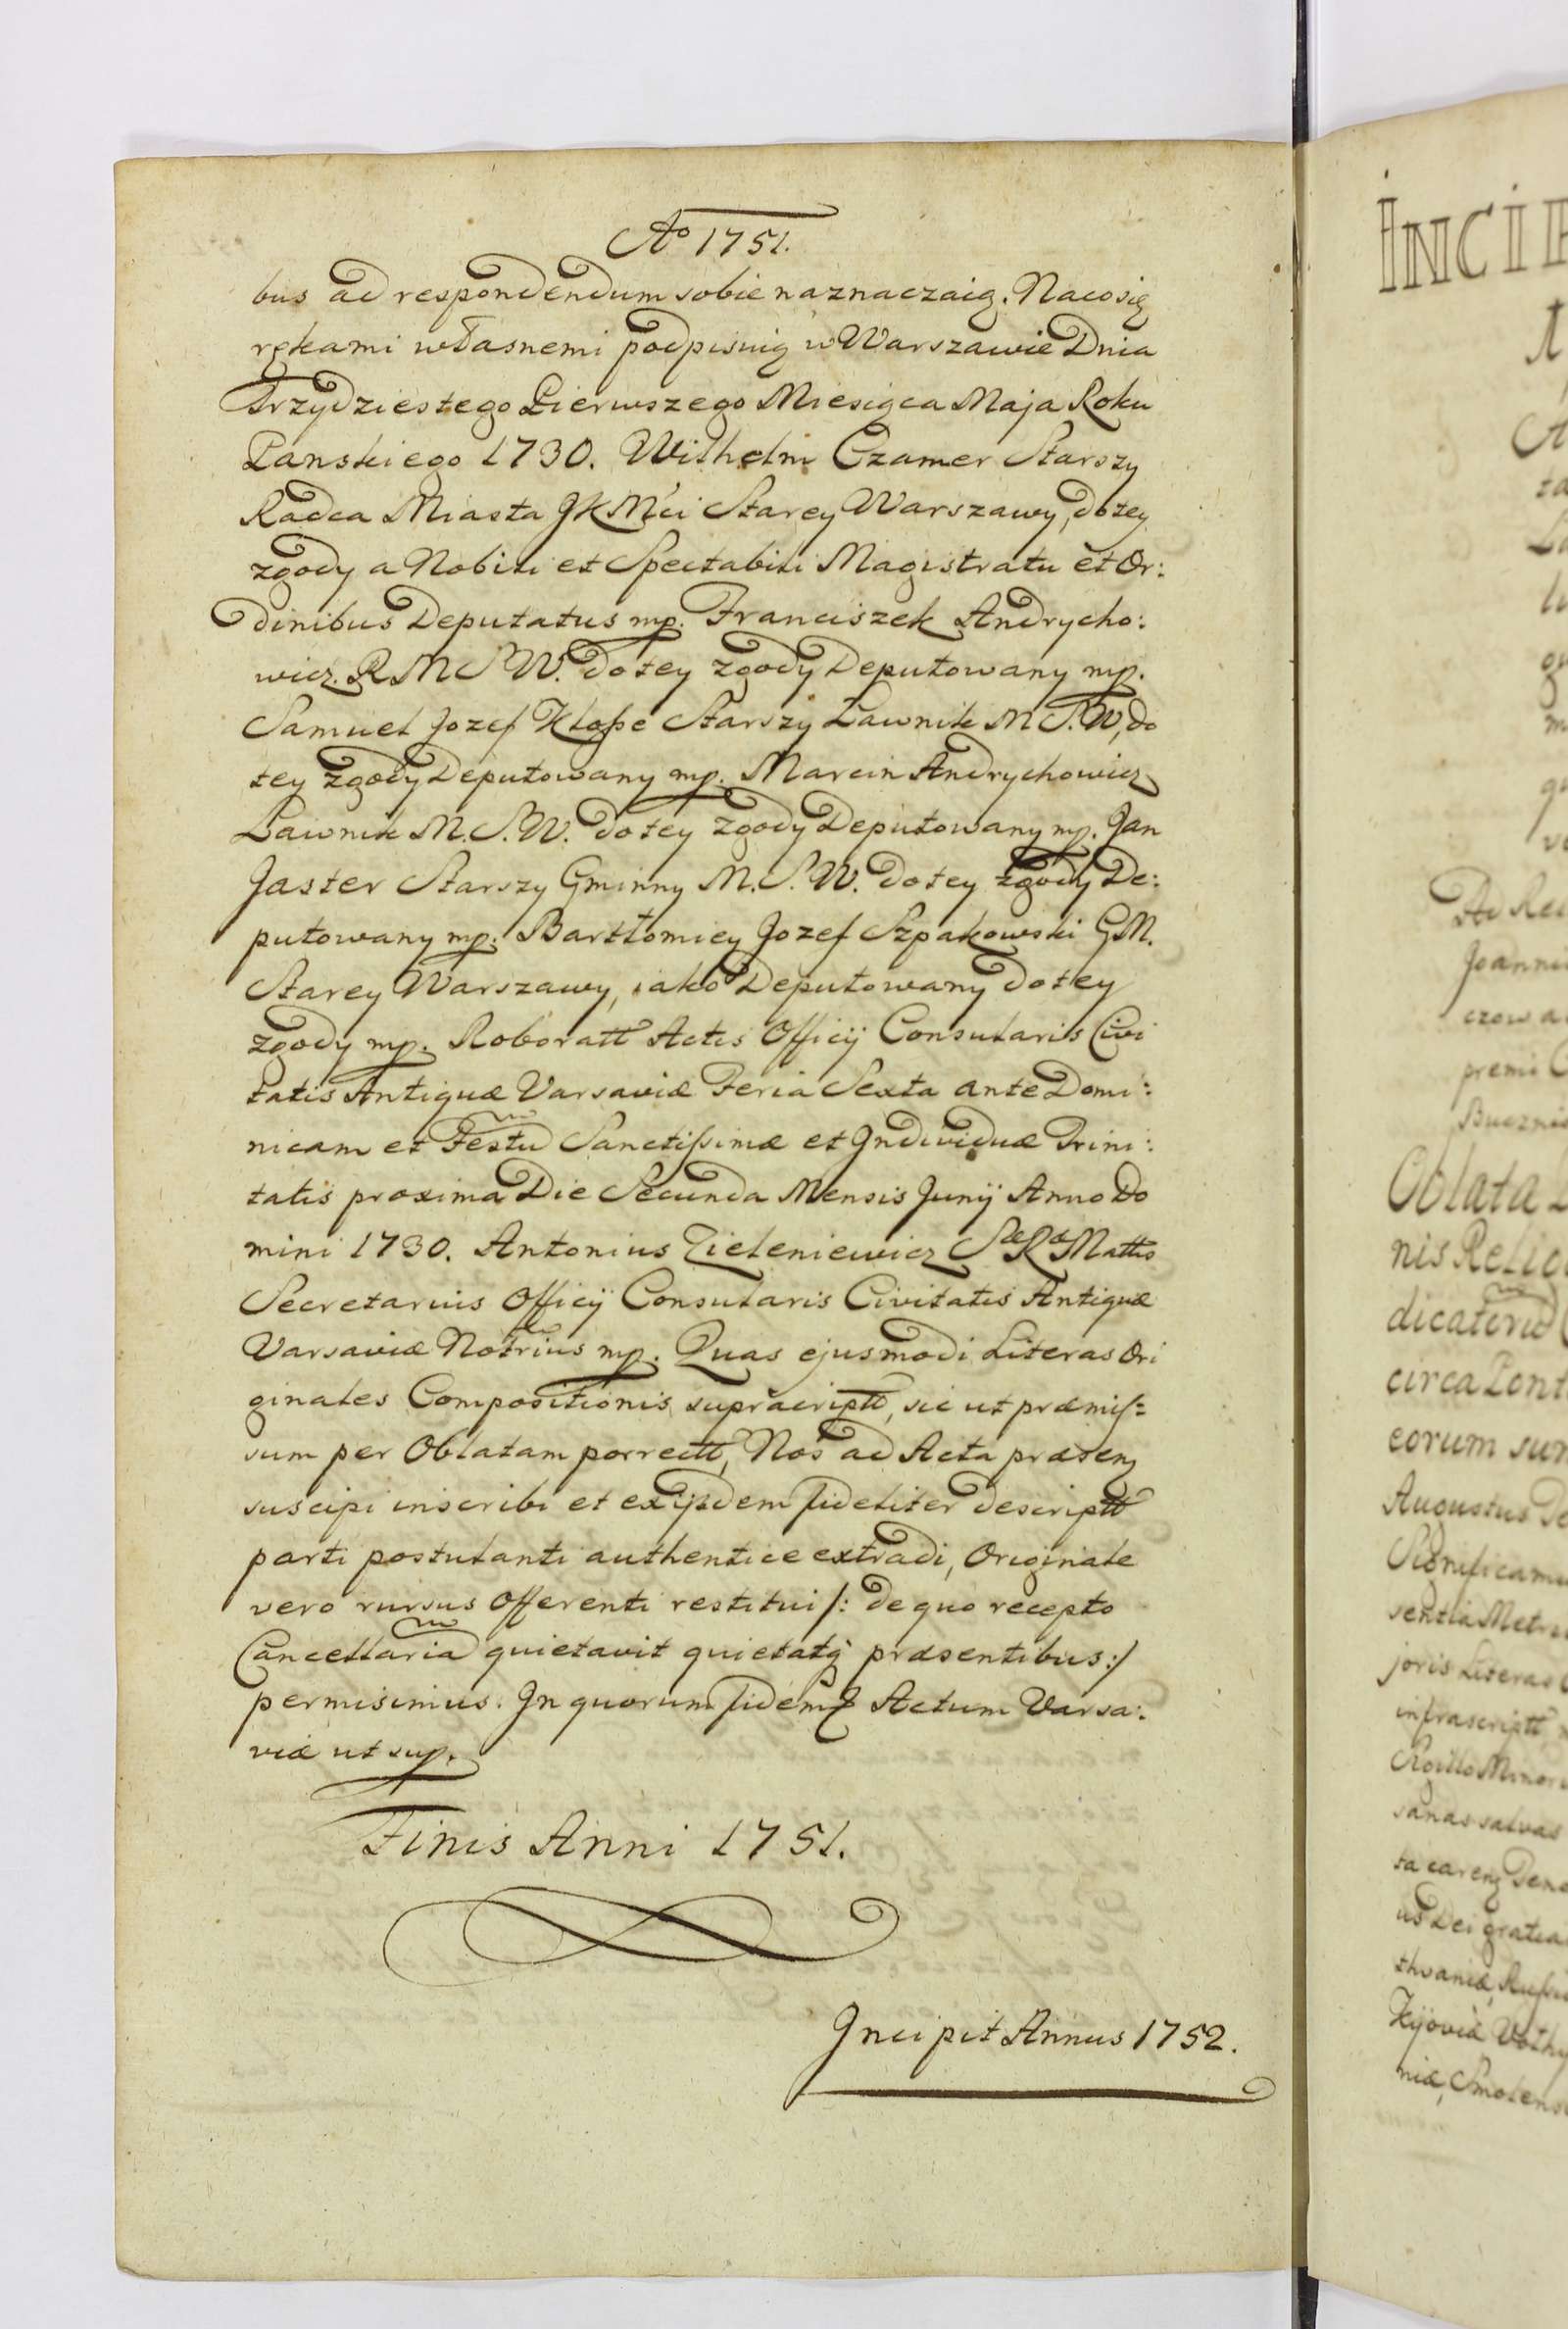 Ao 1751.
bus ad respondendum sobie naznaczaią. Naco się
rękami własnemi podpisuią w Warszawie Dnia
Trzydziestego Pierwszego Miesiąca Maja Roku
Panskiego 1730. Wilhelm Czamer Starszy
Radca Miasta JKMci Starey Warszawy, do tey
zgody a Nobili et Spectabili Magistratu et Or:
dinibus Deputatus mp. Franciszek Andrycho:
wicz. R M S W. do tey zgody Deputowany mp.
Samuel Jozef Klosse Starszy Ławnik M S. W, do
tey zgody Deputowany mp. Marcin Andrychowicz
Ławnik M. S. W. do tey zgody Deputowany mp. Jan
Jaster Starszy Gminny M. S. W. do tey zgody De:
putowany mp. Bartłomiey Jozef Szpakowski G M.
Starey Warszawy, iako Deputowany do tey
zgody mp. Roboratt Actis Officij Consularis Civi
tatis Antiquæ Varsaviæ Feria Sexta ante Domi:
nicam et Festu Sanctissimæ et Individuæ Trini:
tatis proxima Die Secunda Mensis Junij Anno Do
mini 1730. Antonius Zieleniewicz Sæ Ræ Mattis
Secretarius Officij Consularis Civitatis Antiquæ
Varsaviæ Notrius mp. Quas ejusmodi Literas Ori
ginales Compositionis supracriptt, sic ut præmis:
sum per Oblatam porrectt, Nos ad Acta præsenz
suscipi inscribi et ex ijsdem fideliter descriptt
parti postulanti authentice extradi, Originale
vero rursus Offerenti restitui /: de quo recepto
Cancellaria quietavit quietatq præsentibus :/
permisimus. In quorum fidem Actum Varsa:
viæ ut sup.
Finis Anni 1751.
Incipit Annus 1752.
INCIP
Ad Rei
Joanni
czow a
premi C
Oblata
nis Relig
circa Pont
eorum sun
Augustus
Significam
sentia Metri
joris Literas
infrascriptt
sandas salvas
ta carenz
us Dei gratia
thvaniæ, Russi
Kijoviæ Volhy
niæ, Smolens